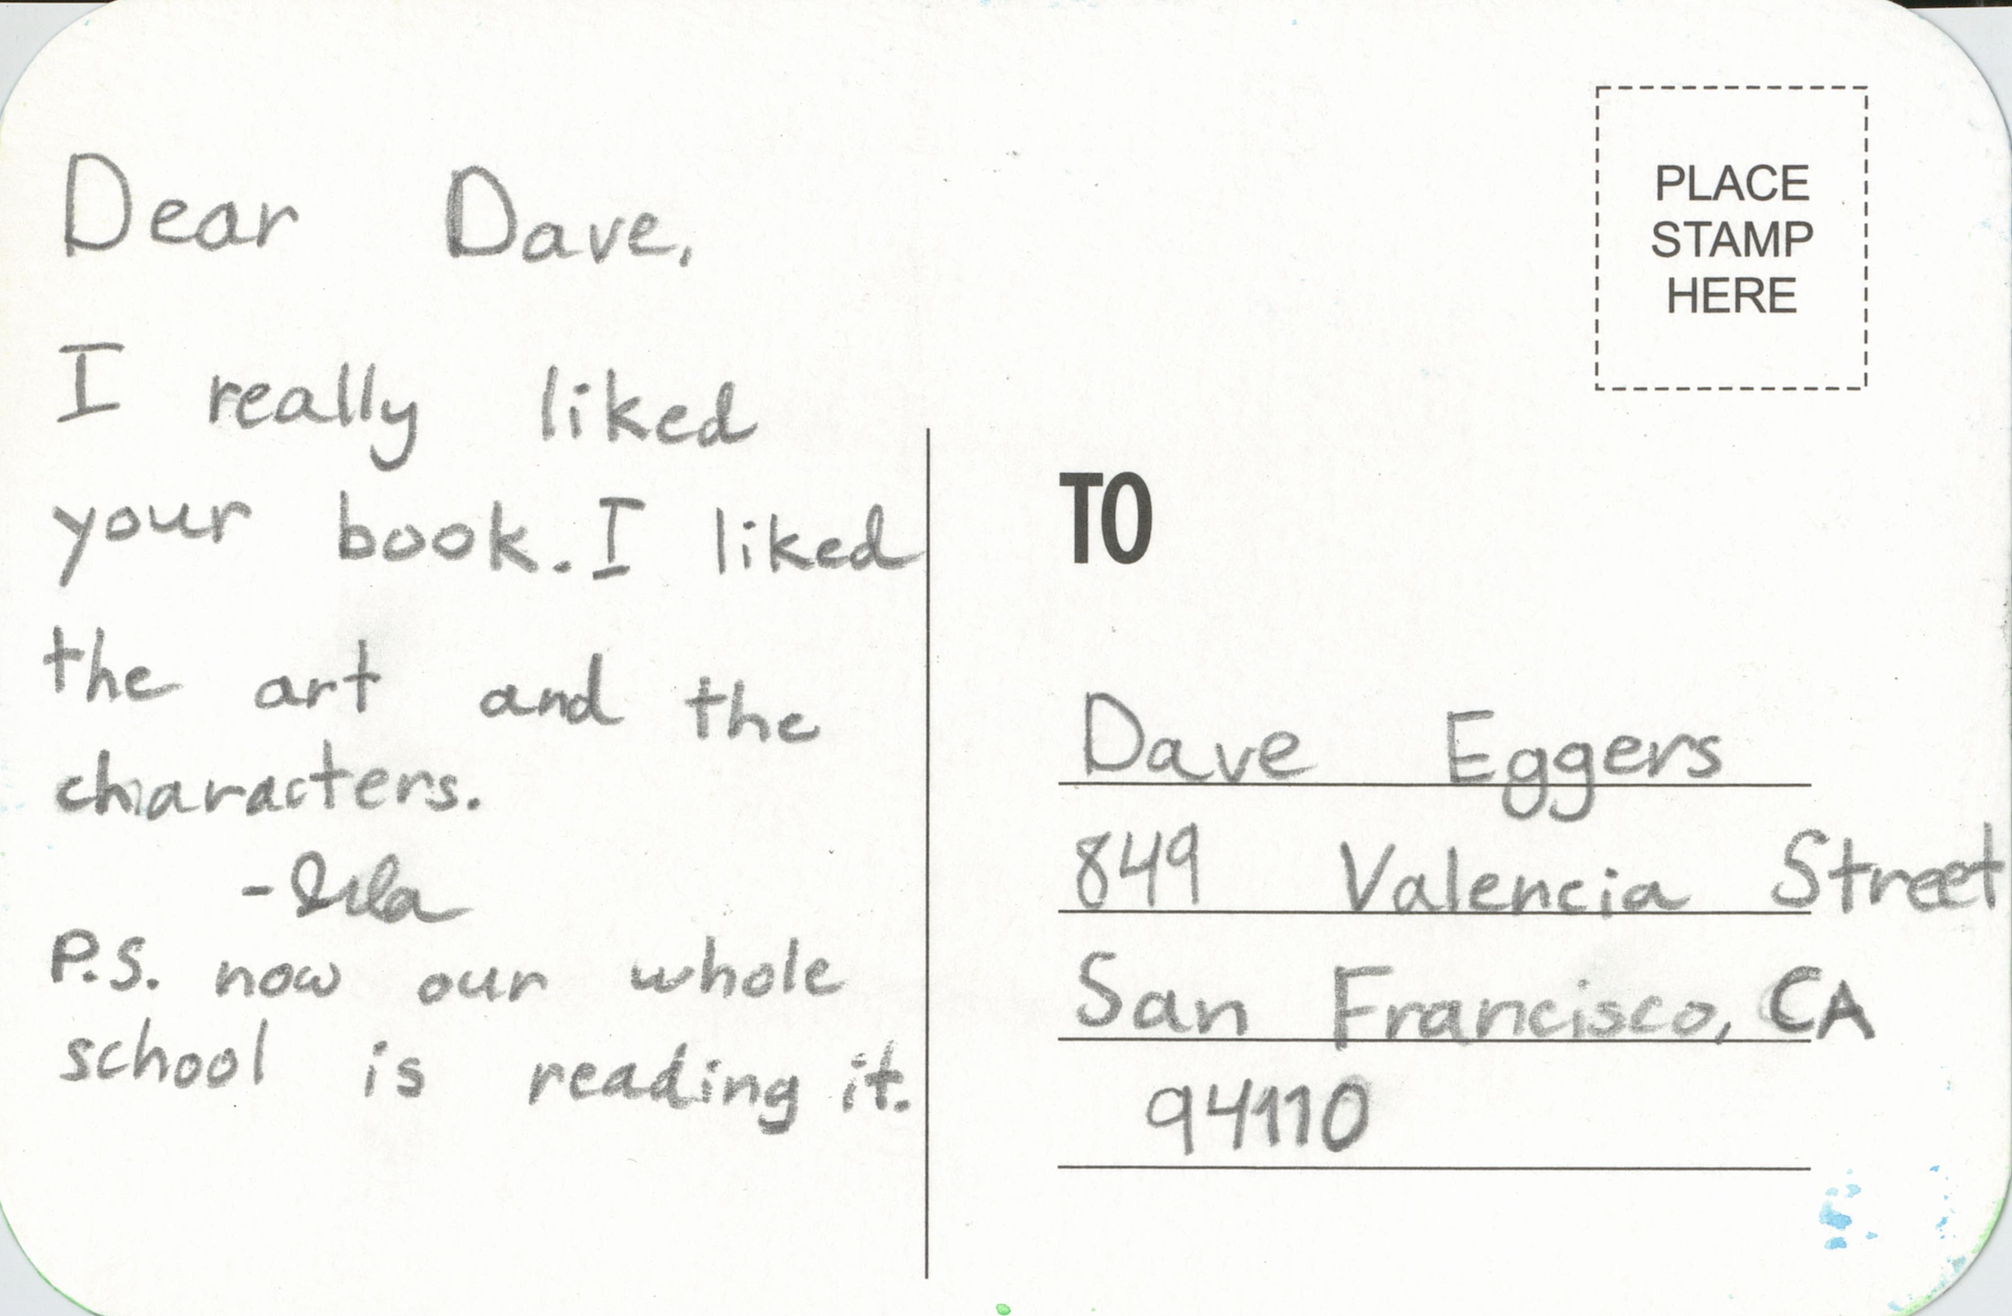 Dear Dave,
I really liked
your book. I liked
the art and the
characters.
-Isla
P.S. now our whole
school is reading it.
PLACE
STAMP
HERE
TO
Dave Eggers
849 Valencia Street
San Francisco, CA
94110